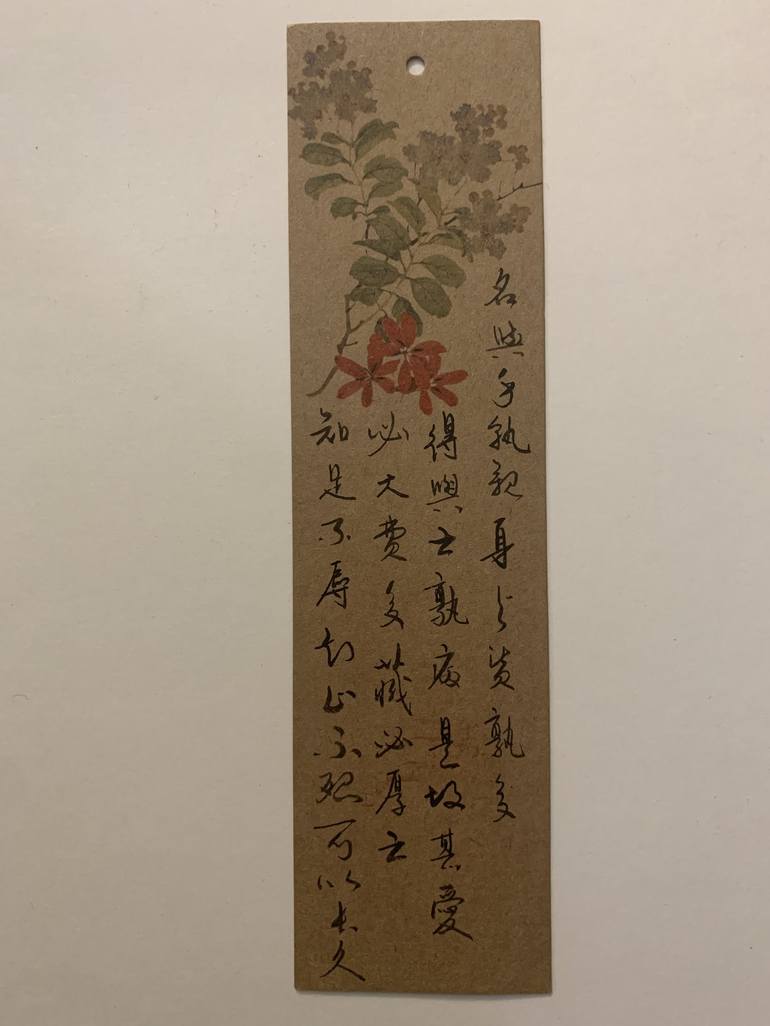 名與身孰親身与貨孰多
得與亡孰病是故甚愛
必大費多藏必厚亡
知足不辱知止不殆可以長久